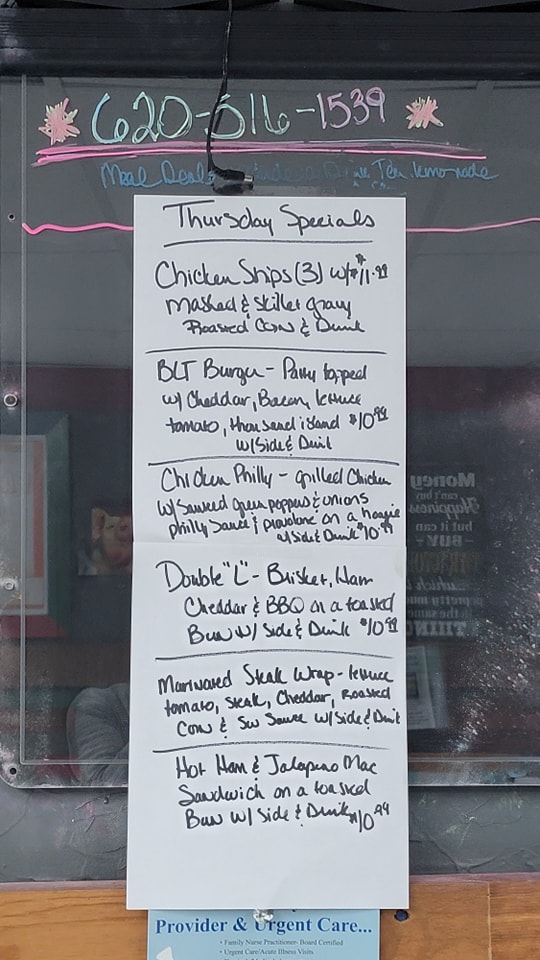 620-516-1539
Meal Deal Tea, lemonade
Thursday Specials
Chicken Strips (3) w/ $11.99
Mashed & Skillet gravy
Roasted Corn & Drink
BLT Burger - Patty topped
w/ Cheddar, Bacon, lettuce
tomato, thousand island $10.99
w/ Side & Drink
Chicken Philly - grilled Chicken
w/ Sauteed green peppers & onions
philly Sauce & provolone on a hoagie
w/ Side & Drink $10.99
Double "L" - Brisket, Ham
Cheddar & BBQ on a toasted
Bun w/ Side & Drink $10.99
Marinated Steak Wrap - lettuce
tomato, Steak, Cheddar, Roasted
Corn & SW Sauce w/ Side & Drink
Hot Ham & Jalapeno Mac
Sandwich on a toasted
Bun w/ Side & Drink $10.99
Money
can't buy
Happiness
but it can
- BUY -
which is
pretty much
the same
THING
Provider & Urgent Care...
• Family Nurse Practitioner- Board Certified
• Urgent Care/Acute Illness Visits